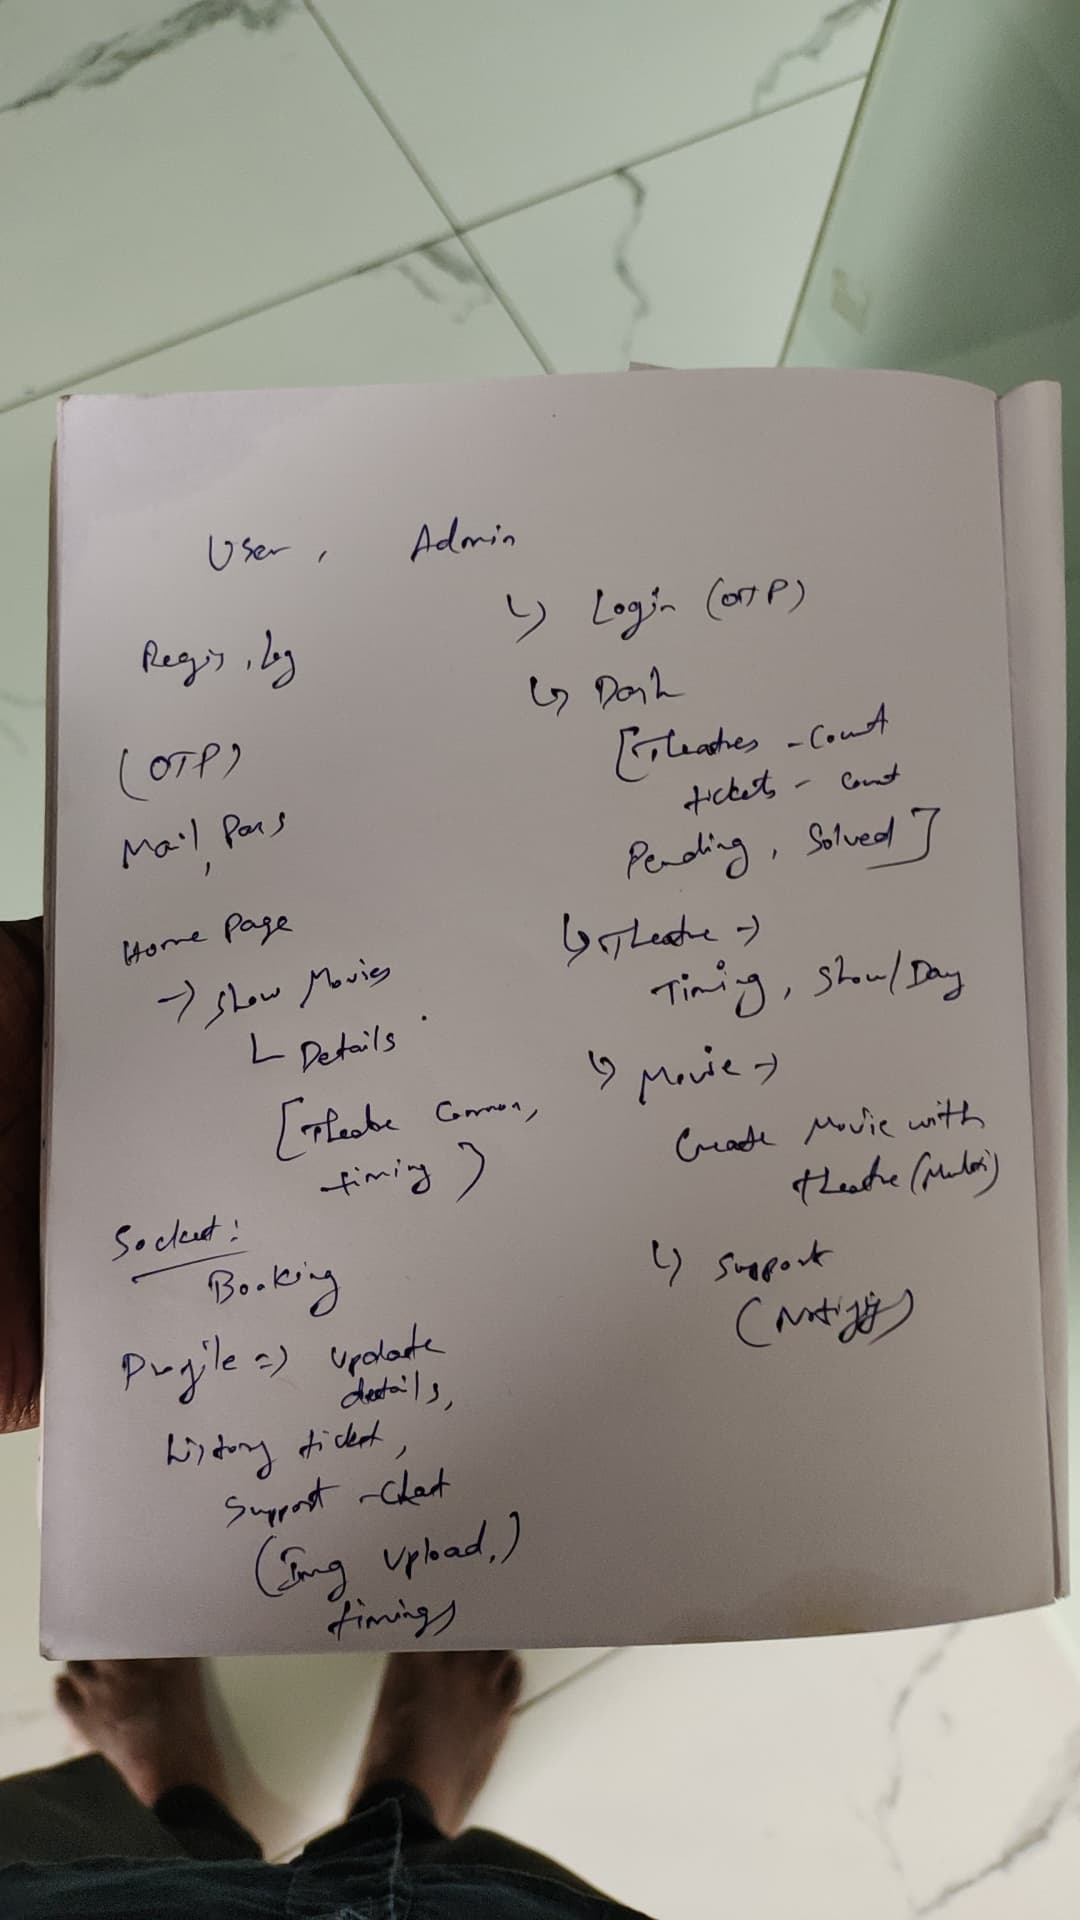 User, Admin
Regis, Log
(OTP)
Mail, Pass
Home Page
→ Show Movies
L Details.
[Theatre Common,
timing]
Socket:
Booking
Profile => update
details,
history ticket,
Support - Chat
(Img Upload,)
timings
↳ Login (OTP)
↳ Dash
[Theatres - Count
tickets - Count
Pending, Solved]
↳ Theatre →
Timing, Show/Day
↳ Movie →
Create Movie with
theatre (Multi)
↳ Support
(Notify)